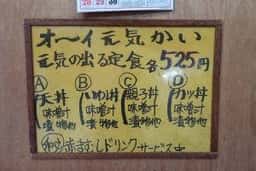 オ〜イ元気かい
元気の出る定食各525円
Ⓐ
天丼
味噌汁
漬物他
Ⓑ
味噌汁
漬物他
Ⓒ
親子丼
味噌汁
漬物他
Ⓓ
カツ丼
味噌汁
漬物他
ドリンクサービス中